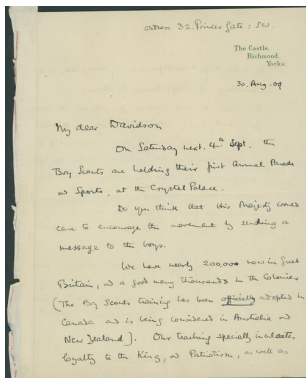 address 32. Princes Gate : SW.
The Castle,
Richmond,
Yorks.
30. Aug. 09
My dear Davidson
On Saturday next. 4th Sept. the
Boy Scouts are holding their first Annual Parade
& Sports, at the Crystal Palace.
Do you think that His Majesty would
care to encourage the movement by sending a
message to the boys.
We have nearly 200,000 now in Great
Britain, & a good many thousands in the Colonies
(The Boy Scouts training has been officially adopted in
Canada and is being considered in Australia and
New Zealand). Our teaching specially inculcates
loyalty to the King, & Patriotism, as well as